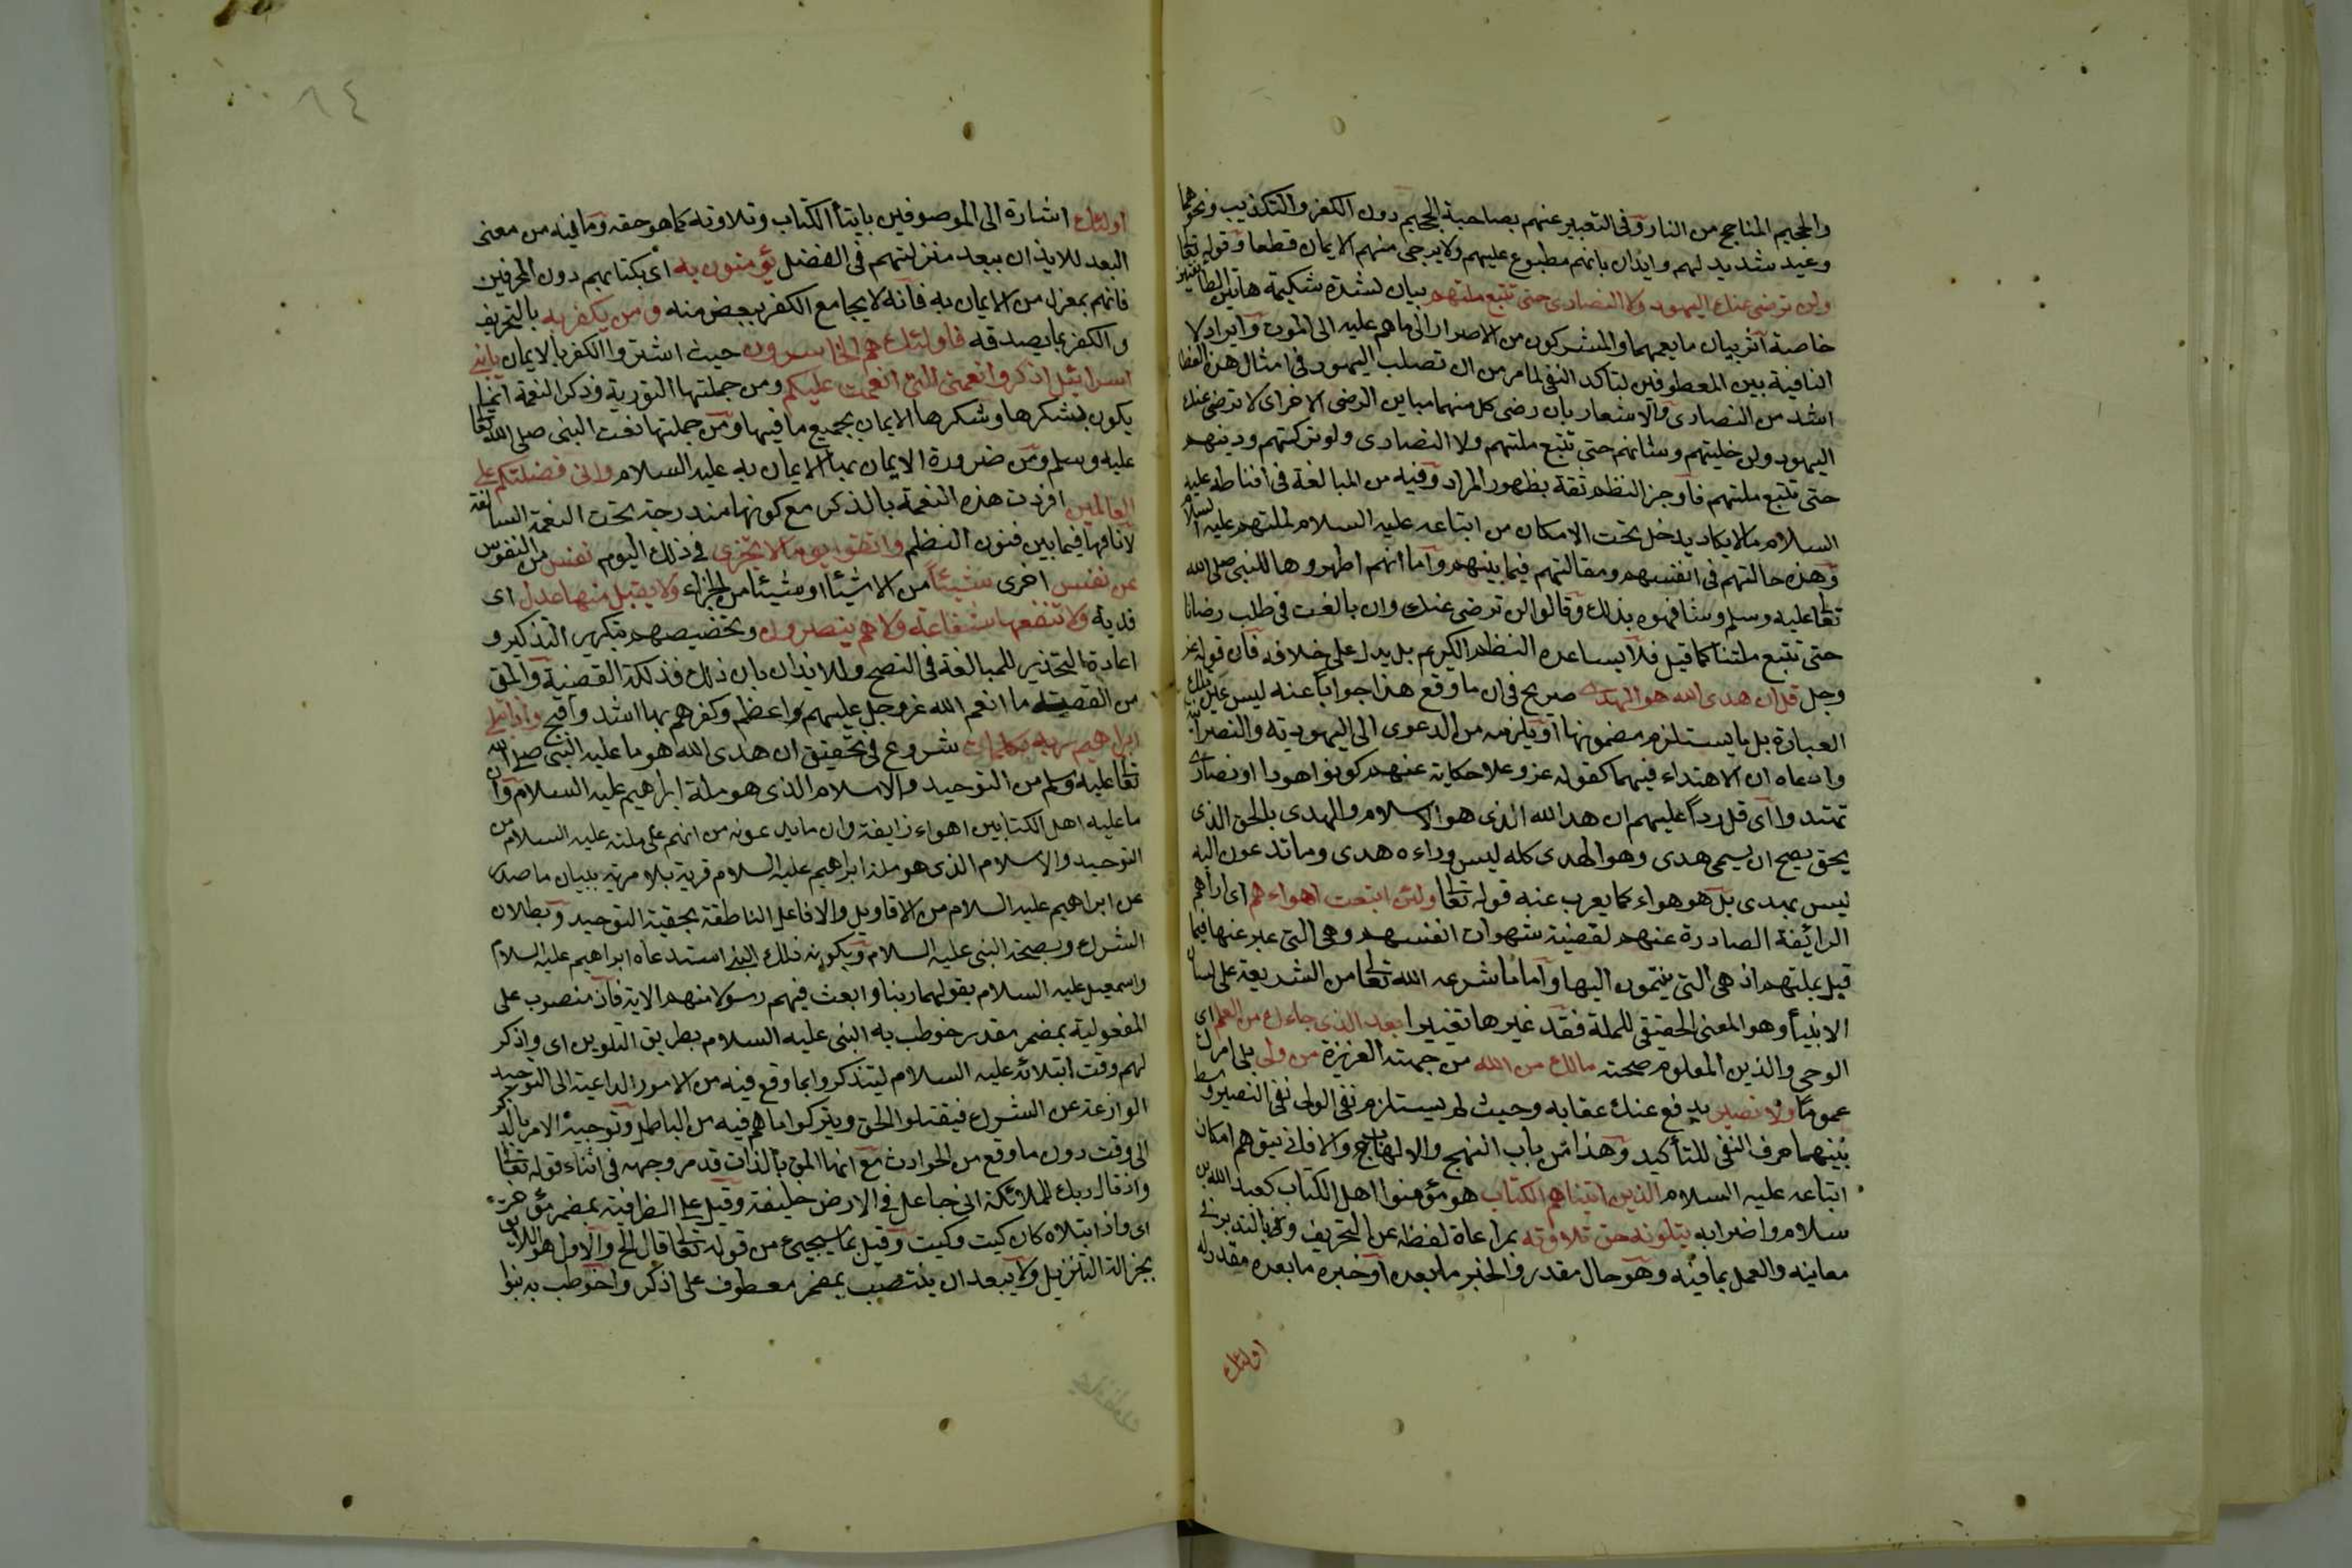 والجحيم المتاجج من النار وفى التعبير عنهم بصاحبة الجحيم دون الكفر والتكذيب ونحوهما
وعيد شديد لهم وايذان بانهم مطبوع عليهم ولا يرجى منهم الايمان قطعا وقوله تعا
ولن ترضى عنك اليهود ولا النصارى حتى تتبع ملتهم بيان لشدة شكيمة هاتين الطائفتين
خاصة اثر بيان ما يعمهما والمشركون من الاصرار الى ما هم عليه الى الموت وايراد لا
النافية بين المعطوفين لتأكد النفى لما مر من ان تصلب اليهود فى امثال هذه العظا
اشد من النصارى والاشعار بان رضى كل منهما مباين الرضى الاخر اى لا ترضى عنك
اليهود ولن خليتهم وشانهم حتى تتبع ملتهم ولا النصارى ولو تركتهم ودينهم
حتى تتبع ملتهم فاوجز النظم ثقة بظهور المراد وفيه من المبالغة فى اقناطه عليه
السلام ما لا يكاد يدخل تحت الامكان من اتباعه عليه السلام لملتهم عليه السلام
وهذه حالتهم فى انفسهم ومقالتهم فيما بينهم واما انهم اظهروها للنبى صلى الله
تعا عليه وسلم وشافهوه بذلك وقالوا لن ترضى عنك وان بالغت فى طلب رضانا
حتى تتبع ملتنا كما قيل فلا يساعده النظم الكريم بل يدل على خلافه فان قوله عز
وجل قل ان هدى الله هو الهدى صريح فى ان ما وقع هذا جوابا عنه ليس عين تلك
العبارة بل ما يستلزم مضمونها او يلزمه من الدعوى الى اليهودية والنصرا
وادعاه ان الاهتداء فيهما كقوله عز وعلا حكاية عنهم كونوا هودا او نصارى
تهتدوا اى قل ردا عليهم ان هدى الله الذى هو الاسلام والهدى بالحق الذى
يحق يصح ان يسمى هدى وهو الهدى كله ليس وراءه هدى وما تدعون اليه
ليس بهدى بل هو هواء كما يعرب عنه قوله تعا ولئن اتبعت اهواءهم اى اراهم
الزائفة الصادرة عنهم لقضية شهوات انفسهم وهى التى عبر عنها فيما
قيل بملتهم اذ هى التى ينتمون اليها واما ما شرعه الله تعا من الشريعة على لسان
الانبياء وهو المعنى الحقيقى للملة فقد غيرها تغييرا بعد الذى جاءك من العلم اى
الوحى والذين المعلوم صحته مالك من الله من جهته العزيزة من ولى يلى امرك
عموما ولا نصير يدفع عنك عقابه وحيث لم يستلزم نفى الولى نفى النصير وسط
بينهما حرف النفى للتأكيد وهذا من باب التهيج والالهاب والا فانى يتوهم امكان
اتباعه عليه السلام الذين اتيناهم الكتاب هو مؤمنوا اهل الكتاب كعبد الله بن
سلام واضرابه يتلونه حق تلاوته بمراعاة لفظه عن التحريف وبالتدبر فى
معانيه والعمل بما فيه وهو حال مقدر والخبر ما بعده او خبره ما بعده مقدر له
اولئك
اولئك اشارة الى الموصوفين بايتأ الكتاب وتلاوته كما هو حقه وما فيه من معنى
البعد للايذان ببعد منزلتهم فى الفضل يؤمنون به اى بكتابهم دون المحرفين
فانهم بمعزل من الايمان به فانه لا يجامع الكفر ببعض منه ومن يكفر به بالتحريف
والكفر بما يصدقه فاولئك هم الخاسرون حيث اشتروا الكفر بالايمان يا بنى
اسرائيل اذكروا نعمتى التى انعمت عليكم ومن جملتها التورية وذكر النعمة انما
يكون بشكرها وشكرها الايمان بجميع ما فيها ومن جملتها نعت النبى صلى الله تعا
عليه وسلم ومن ضرورة الايمان بها الايمان به عليه السلام وانى فضلتكم على
العالمين افردت هذه النعمة بالذكر مع كونها مندرجة تحت النعمة السالفة
لانافتها فيما بين فنون النظم واتقوا يوما لا تجزى فى ذلك اليوم نفس من النفوس
عن نفس اخرى شيئا من الاشيأ او شيئا من الجزاء ولا يقبل منها عدل اى
فدية ولا تنفعها شفاعة ولا هم ينصرون وتخصيصهم بتكرير التذكير و
اعادة التحذير للمبالغة فى النصح وللايذان بان ذلك فذلكة القضية والمق
من القصة ما انعم الله عز وجل عليهم واعظم وكفرهم بها اشد واقبح واذ ابتلى
ابراهيم ربه بكلمات شروع فى تحقيق ان هدى الله هو ما عليه النبى صلى الله
تعا عليه وسلم من التوحيد والاسلام الذى هو ملة ابراهيم عليه السلام وان
ما عليه اهل الكتابين اهواء زايفة وان ما يدعونه من انهم على ملته عليه السلام من
التوحيد والاسلام الذى هو ملة ابراهيم عليه السلام فرية بلا مرية ببيان ما صدر
عن ابراهيم عليه السلام من الاقاويل والافاعل الناطقة بحقية التوحيد وبطلان
الشرك وبصحة النبى عليه السلام وبكونه ذلك النبى استدعاه ابراهيم عليه السلام
واسمعيل عليه السلام بقولهما ربنا وابعث فيهم رسولا منهم الاية فاذ منصوب على
المفعولية بمضمر مقدر خوطب به النبى عليه السلام بطريق التلوين اى واذكر
لهم وقت ابتلائه عليه السلام ليتذكروا بما وقع فيه من الامور الداعية الى التوحيد
الوازعة عن الشرك فيقبلوا الحق ويتركوا ما هم فيه من الباطل وتوجيه الامر بالذكر
الى وقت دون ما وقع من الحوادث مع انها المق بالذات قد مر وجهه فى اثناء قوله تعا
واذ قال ربك للملائكة انى جاعل فى الارض خليفة وقيل على الظرفية بمضمر مؤخر
اى واذ ابتلاه كان كيت وكيت وقيل بما سيجيئ من قوله تعا قال الخ والاول هو اللائق
بجزالة التنزيل ولا يبعد ان ينتصب بمضمر معطوف على اذكر وا خوطب به بنوا